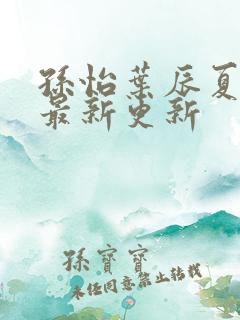 孫怡葉辰夏
最新更新
孫寶寶
未经同意禁止转载